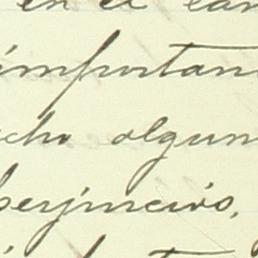 en el cam
importan
cho algun
perjuicio,